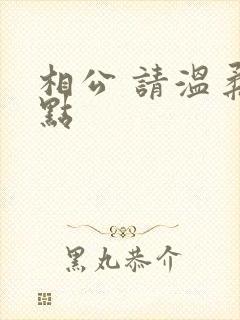 相公 請溫柔
點
黑丸恭介